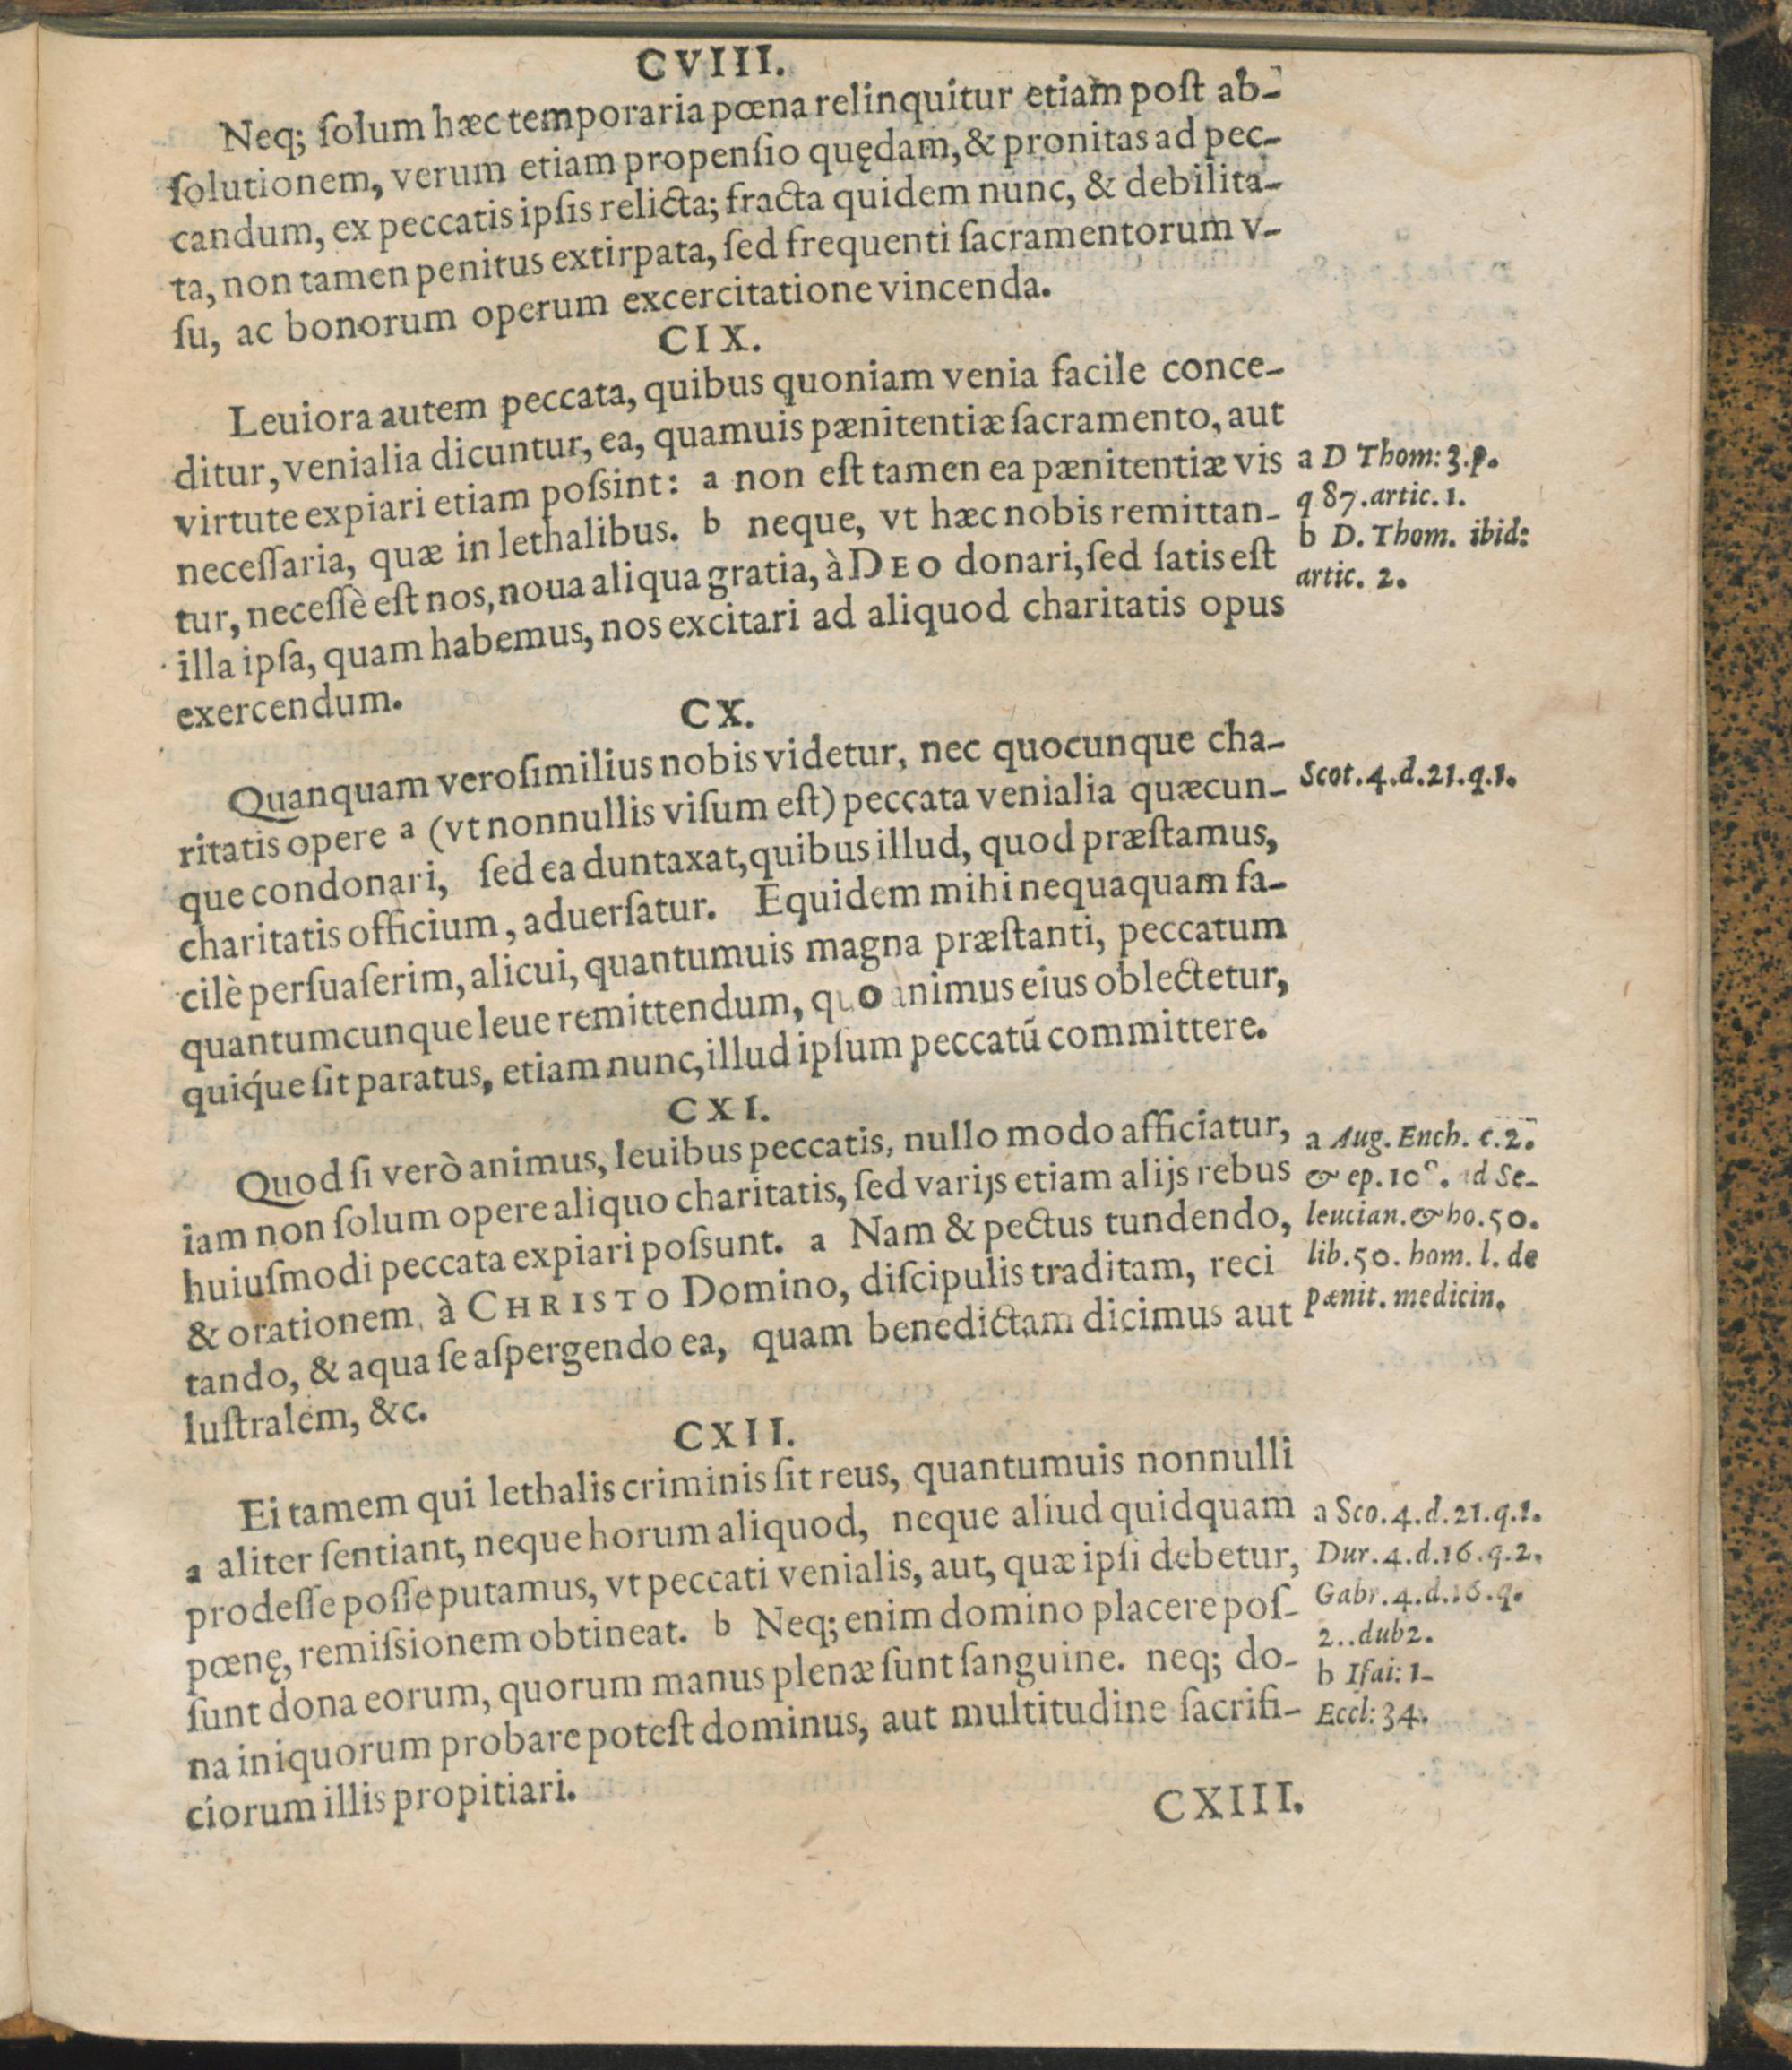 CVIII.
Neq; ſolum hæc temporaria pœna relinquitur etiam poſt ab-
ſolutionem, verum etiam propenſio quędam, & pronitas ad pec-
candum, ex peccatis ipſis relicta; fracta quidem nunc, & debilita-
ta, non tamen penitus extirpata, ſed frequenti ſacramentorum v-
ſu, ac bonorum operum excercitatione vincenda.
CIX.
Leuiora autem peccata, quibus quoniam venia facile conce-
ditur, venialia dicuntur, ea, quamuis pænitentiæ ſacramento, aut
virtute expiari etiam poſsint: a non eſt tamen ea pænitentiæ vis
neceſſaria, quæ in lethalibus. b neque, vt hæc nobis remittan-
tur, neceſſè eſt nos, noua aliqua gratia, à DEO donari, ſed ſatis eſt
illa ipſa, quam habemus, nos excitari ad aliquod charitatis opus
exercendum.
a D Thom: 3. p.
q 87. artic. 1.
b D. Thom. ibid:
artic. 2.
CX.
Quanquam veroſimilius nobis videtur, nec quocunque cha-
ritatis opere a (vt nonnullis viſum eſt) peccata venialia quæcun-
que condonari, ſed ea duntaxat, quibus illud, quod præſtamus,
charitatis officium, aduerſatur. Equidem mihi nequaquam fa-
cilè perſuaſerim, alicui, quantumuis magna præſtanti, peccatum
quantumcunque leue remittendum, quo animus eius oblectetur,
quiq́ue ſit paratus, etiam nunc, illud ipſum peccatū committere.
Scot. 4. d. 21. q. 1.
CXI.
Quod ſi verò animus, leuibus peccatis, nullo modo afficiatur,
iam non ſolum opere aliquo charitatis, ſed varijs etiam alijs rebus
huiuſmodi peccata expiari poſsunt. a Nam & pectus tundendo,
& orationem, à CHRISTO Domino, diſcipulis traditam, reci
tando, & aqua ſe aſpergendo ea, quam benedictam dicimus aut
luſtralem, &c.
a Aug. Ench. c. 2.
& ep. ad Se-
leucian. & ho. 50.
lib. 50. hom. l. de
pænit. medicin.
CXII.
Ei tamem qui lethalis criminis ſit reus, quantumuis nonnulli
a aliter ſentiant, neque horum aliquod, neque aliud quidquam
prodeſſe poſſe putamus, vt peccati venialis, aut, quæ ipſi debetur,
pœnę, remiſsionem obtineat. b Neq; enim domino placere poſ-
ſunt dona eorum, quorum manus plenæ ſunt ſanguine. neq; do-
na iniquorum probare poteſt dominus, aut multitudine ſacrifi-
ciorum illis propitiari.
a Sco. 4. d. 21. q. 1.
Dur. 4. d. 16. q. 2.
Gabr. 4. d. 16. q.
2.. dub2.
b Iſai: 1-
Eccl: 34.
CXIII.